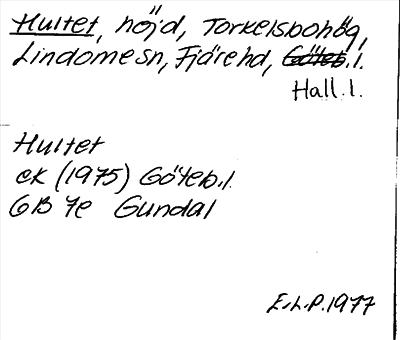 Hultet, höjd, Torkelsbohög,
Lindome sn, Fjäre hd, Göteb. l.
Hall. l.
Hultet
ek (1975) Göteb. l.
GB 7e Gundal
E.L.P. 1977